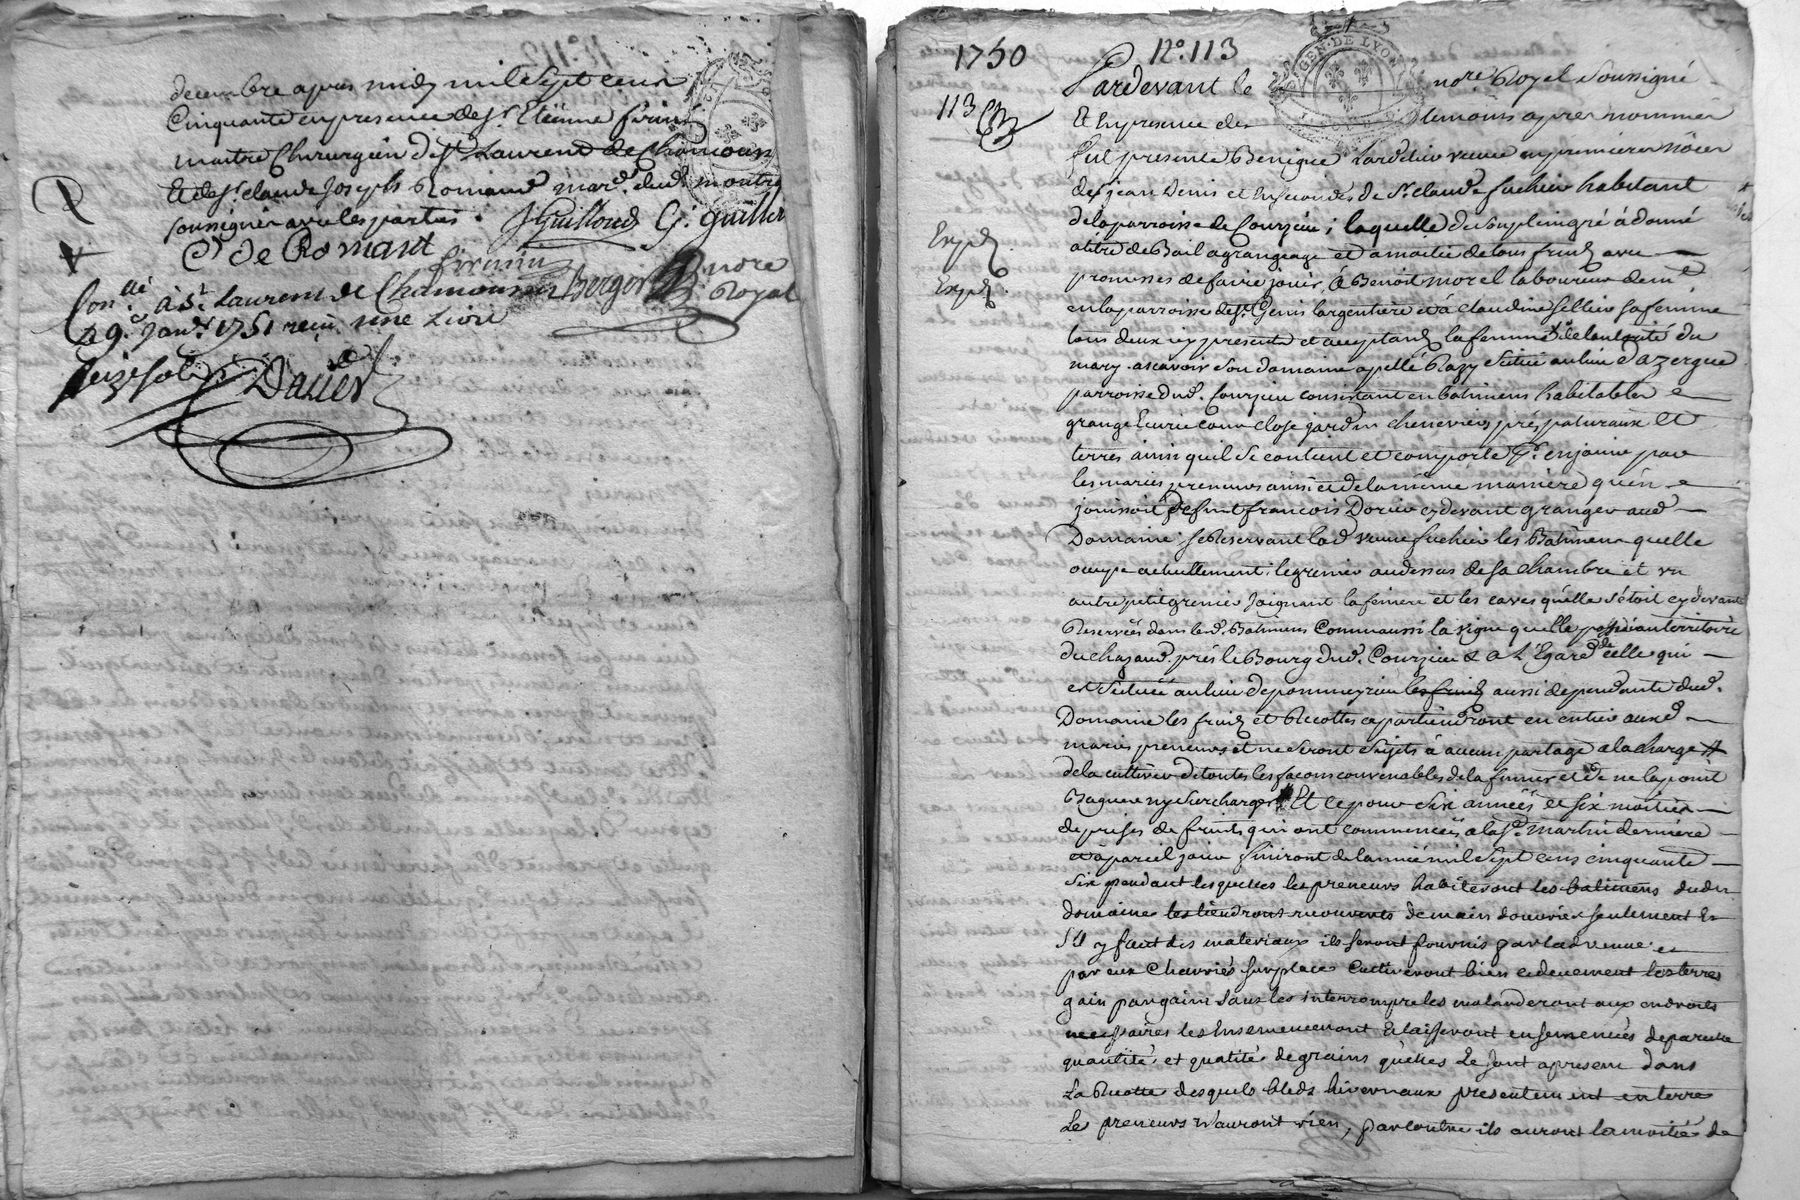 decembre apres midy mil sept cens
Cinquante en presence de sr. Etienne
maitre Chirurgien de st. Laurent de Chamousset
et de sr. claude Joseph Romand mard. dud. montro
soussignés avec les parties. J Guilloud G. guillet
C de Romand
Con.llé à St. Laurent de Chamousset Berger nore
Royal
le 9e Janer. 1751 reçu une Livre
seize sols
Davier
1750 No. 113
GEN. DE LYON
113
Pardevant le nore. Royal soussigné
Et En presence des temoins apres nommés
fut presente Benigne veuve en premieres nôces
de sr. jean Denis et En secondes de Sr. claude fuchier habitant
de la parroisse de Courzieu ; laquelle de son plein gré à donné
a titre de Bail a grangeage et a moitié de tous fruits avec
promesses de faire jouir, à Benoit morel laboureur demt.
Expd.
Expd.
en la parroisse de st. Genis largentiere et à claudine Sellier sa femme
tous deux icy presents et acceptants la femme de lautorité du
mary. ascavoir son domaine apellé Razy situé au lieu d'azergue
parroisse dud. Courzieu consistant en batimens habitables
grange Ecurie cour close jardin chenevieres prés paturaux Et
terres ainsi quil se contient et comporte pr. en jouir par
les mariés preneurs ainsi et de la même maniere qu'en
jouissoit deffunt francois Dorier cy devant granger aud.
Domaine, se Reservant lad. veuve fuchier les Batimens quelle
occupe actuellement, le grenier au dessus de sa chambre et un
autre petit grenier Joignant la feniere et les caves qu'elle s'étoit cy devant
Reservées dans lesd. Batimens Comme aussi la vigne quelle possede au territoire
du chazaud. près le Bourg dud. Courzieu & a L'Egard de celle qui
est située au lieu de pommeyrieu les fruits aussi dependante dud.
Domaine les fruits et Recoltes apartiendront en entier auxd.
mariés preneurs et ne seront sujets à aucun partage a la charge
de la cultiver de toutes les façons convenables de la fumer et de ne la point
ny surcharger Et ce pour six années et six moitiés
de prises de fruits qui ont commencées a la st. martin derniere
et à pareil jour finiront de lannée mil sept cens cinquante
six pendant lesquelles les preneurs habiteront les batimens dudit
domaine les tiendront recouverts de main douvriers seulement Et
S'il y faut des materiaux ils seront fournis par lad veuve et
par eux Charriés sur place Cultiveront bien et deuement les terres
gain par gain sans les interrompre les malanderont aux endroits
necessaires les Ensemenceront Et laisseront ensemencés de pareille
quantité et qualité de grains qu'elles Le sont apresent dans
La Recolte desquels bleds hivernaux presentement en terre
Les preneurs n'auront rien, par contre ils auront la moitié de